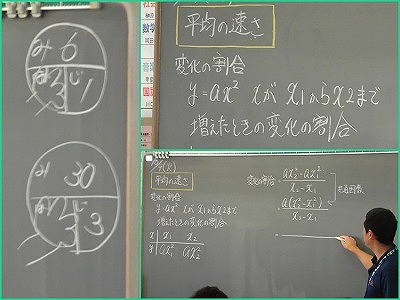 み 6
は 3 じ 1
み 30
は じ 3
平均の速さ
変化の割合
y=ax² xがx1からx2まで
増えたときの変化の割合
数学
国語
平均の速さ
変化の割合
y=ax² xがx1からx2まで
増えたときの変化の割合
x x1 x2
y ax1² ax2²
変化の割合= ax2²-ax1²
x2-x1
共通因数
= a(x2²-x1²)
x2-x1